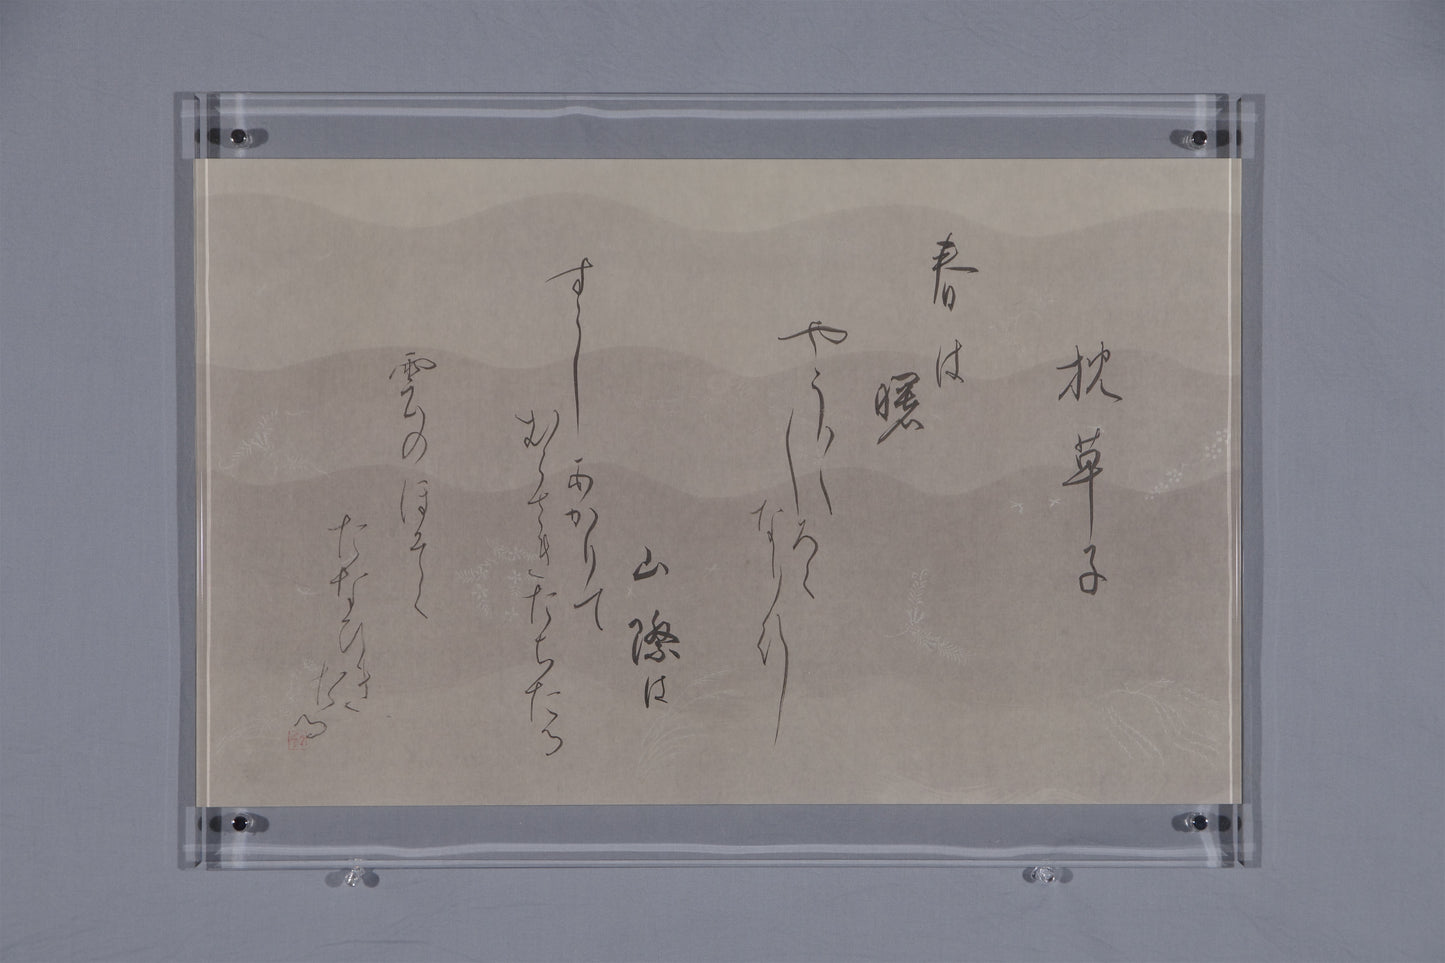 枕草子
春は
曙
やう〳〵しろく
なり行
山際は
すこし
あかりて
むらさきたちたる
雲のほそく
たなひき
たる